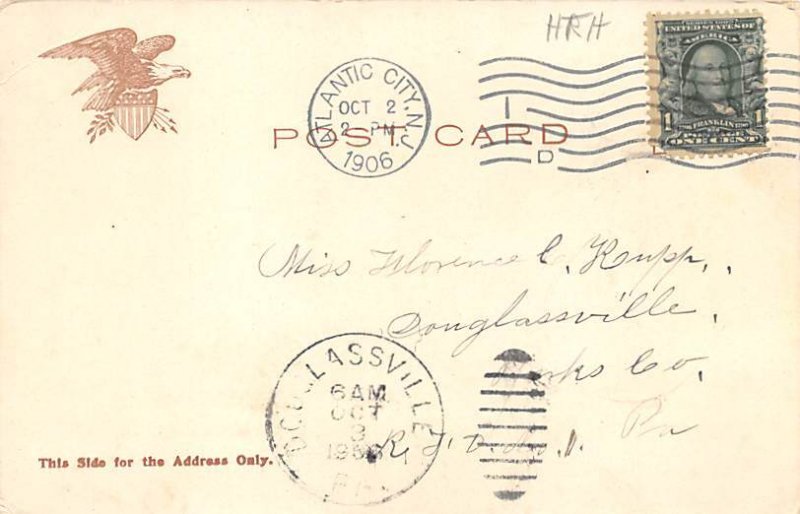 HRH
SERIES 1902
UNITED STATES OF
AMERICA
1 FRANKLIN 1
POSTAGE
ONE CENT
ATLANTIC CITY, N.J.
OCT 2
2 PM
1906
I
D
POST CARD
Miss Florence C. Kupp.,
Douglassville,
Berks Co,
Pa
R. F. D. No. 1.
DOUGLASSVILLE
6 AM
OCT
3
1906
PA.
This Side for the Address Only.